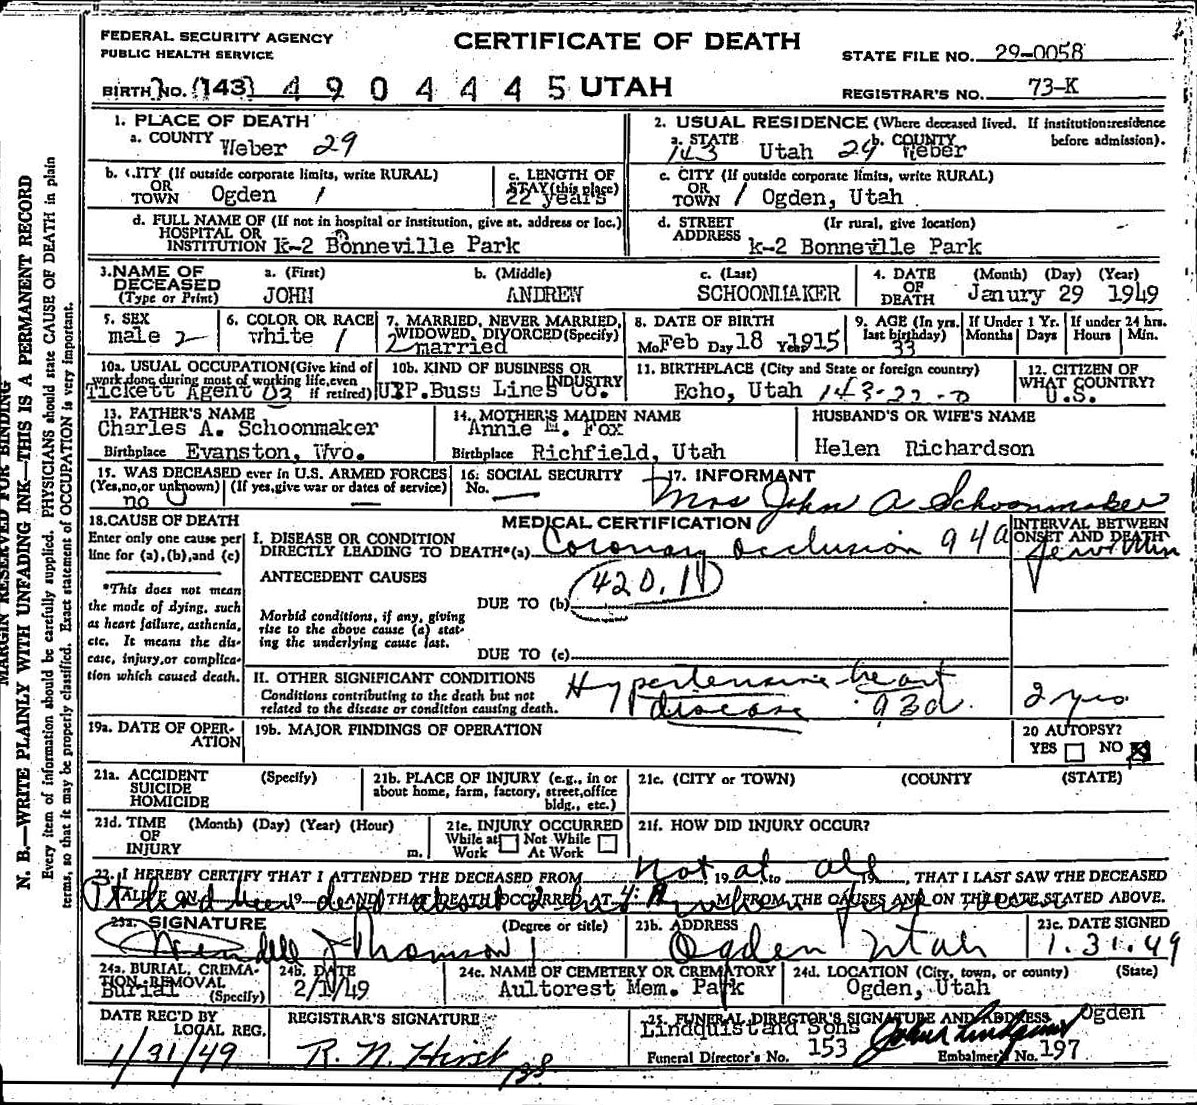 FEDERAL SECURITY AGENCY
PUBLIC HEALTH SERVICE
CERTIFICATE OF DEATH
STATE FILE NO. 29-0058
BIRTH NO. (143) 4 9 0 4 4 4 5 UTAH
REGISTRAR'S NO. 73-K
MARGIN RESERVED FOR BINDING
N. B.—WRITE PLAINLY WITH UNFADING INK—THIS IS A PERMANENT RECORD
Every item of information should be carefully supplied. PHYSICIANS should state CAUSE OF DEATH in plain
terms, so that it may be properly classified. Exact statement of OCCUPATION is very important.
1. PLACE OF DEATH
a. COUNTY Weber 29
2. USUAL RESIDENCE (Where deceased lived. If institution:residence before admission).
a. STATE 143 Utah 29 b. COUNTY Weber
b. CITY (If outside corporate limits, write RURAL)
OR TOWN Ogden 1
c. LENGTH OF STAY (this place) 22 years
c. CITY (If outside corporate limits, write RURAL)
OR TOWN 1 Ogden, Utah
d. FULL NAME OF (If not in hospital or institution, give st. address or loc.)
HOSPITAL OR INSTITUTION K-2 Bonneville Park
d. STREET ADDRESS (Ir rural, give location)
k-2 Bonneville Park
3. NAME OF DECEASED (Type or Print)
a. (First) JOHN
b. (Middle) ANDREW
c. (Last) SCHOONMAKER
4. DATE OF DEATH (Month) (Day) (Year)
Janury 29 1949
5. SEX male 2
6. COLOR OR RACE white 1
7. MARRIED, NEVER MARRIED, WIDOWED, DIVORCED(Specify) 2 married
8. DATE OF BIRTH Mo. Feb Day 18 Year 1915
9. AGE (In yrs. last birthday) 33
If Under 1 Yr. Months Days
If under 24 hrs. Hours Min.
10a. USUAL OCCUPATION(Give kind of work done during most of working life, even if retired) Tickett Agent 03
10b. KIND OF BUSINESS OR INDUSTRY U.P. Buss Lines Co.
11. BIRTHPLACE (City and State or foreign country)
Echo, Utah 143-22-0
12. CITIZEN OF WHAT COUNTRY? U.S.
13. FATHER'S NAME
Charles A. Schoonmaker
Birthplace Evanston, Wyo.
14. MOTHER'S MAIDEN NAME
Annie M. Fox
Birthplace Richfield, Utah
HUSBAND'S OR WIFE'S NAME
Helen Richardson
15. WAS DECEASED ever in U.S. ARMED FORCES
(Yes,no,or unknown) (If yes,give war or dates of service)
no 0 —
16. SOCIAL SECURITY No. —
17. INFORMANT
Mrs John A Schoonmaker
18. CAUSE OF DEATH
Enter only one cause per line for (a),(b),and (c)
*This does not mean
the mode of dying, such
as heart failure, asthenia,
etc. It means the dis-
ease, injury,or complica-
tion which caused death.
MEDICAL CERTIFICATION
INTERVAL BETWEEN ONSET AND DEATH
I. DISEASE OR CONDITION
DIRECTLY LEADING TO DEATH*(a) Coronary occlusion 94a few Min
ANTECEDENT CAUSES
420.1
DUE TO (b)
Morbid conditions, if any, giving
rise to the above cause (a) stat-
ing the underlying cause last.
DUE TO (c)
II. OTHER SIGNIFICANT CONDITIONS
Conditions contributing to the death but not
related to the disease or condition causing death.
Hypertensive heart
disease 93d. 2 yrs.
19a. DATE OF OPERATION
19b. MAJOR FINDINGS OF OPERATION
20 AUTOPSY?
YES NO X
21a. ACCIDENT SUICIDE HOMICIDE (Specify)
21b. PLACE OF INJURY (e.g., in or about home, farm, factory, street,office bldg., etc.)
21c. (CITY or TOWN) (COUNTY) (STATE)
21d. TIME OF INJURY (Month) (Day) (Year) (Hour) m.
21e. INJURY OCCURRED
While at Work Not While At Work
21f. HOW DID INJURY OCCUR?
22. I HEREBY CERTIFY THAT I ATTENDED THE DECEASED FROM not 19 at to all 19, THAT I LAST SAW THE DECEASED
ALIVE ON 19 AND THAT DEATH OCCURRED AT M., FROM THE CAUSES AND ON THE DATE STATED ABOVE.
Pt had been dead about when first seen
23a. SIGNATURE (Degree or title)
Wendell J Thomson
23b. ADDRESS
Ogden Utah
23c. DATE SIGNED
1.31.49
24a. BURIAL, CREMATION, REMOVAL (Specify) Burial
24b. DATE 2/1/49
24c. NAME OF CEMETERY OR CREMATORY
Aultorest Mem. Park
24d. LOCATION (City, town, or county) (State)
Ogden, Utah
DATE REC'D BY LOCAL REG.
1/31/49
REGISTRAR'S SIGNATURE
R. N. Hirst
138
25. FUNERAL DIRECTOR'S SIGNATURE AND ADDRESS Ogden
Lindquist and Sons
Funeral Director's No. 153 Embalmer's No. 197